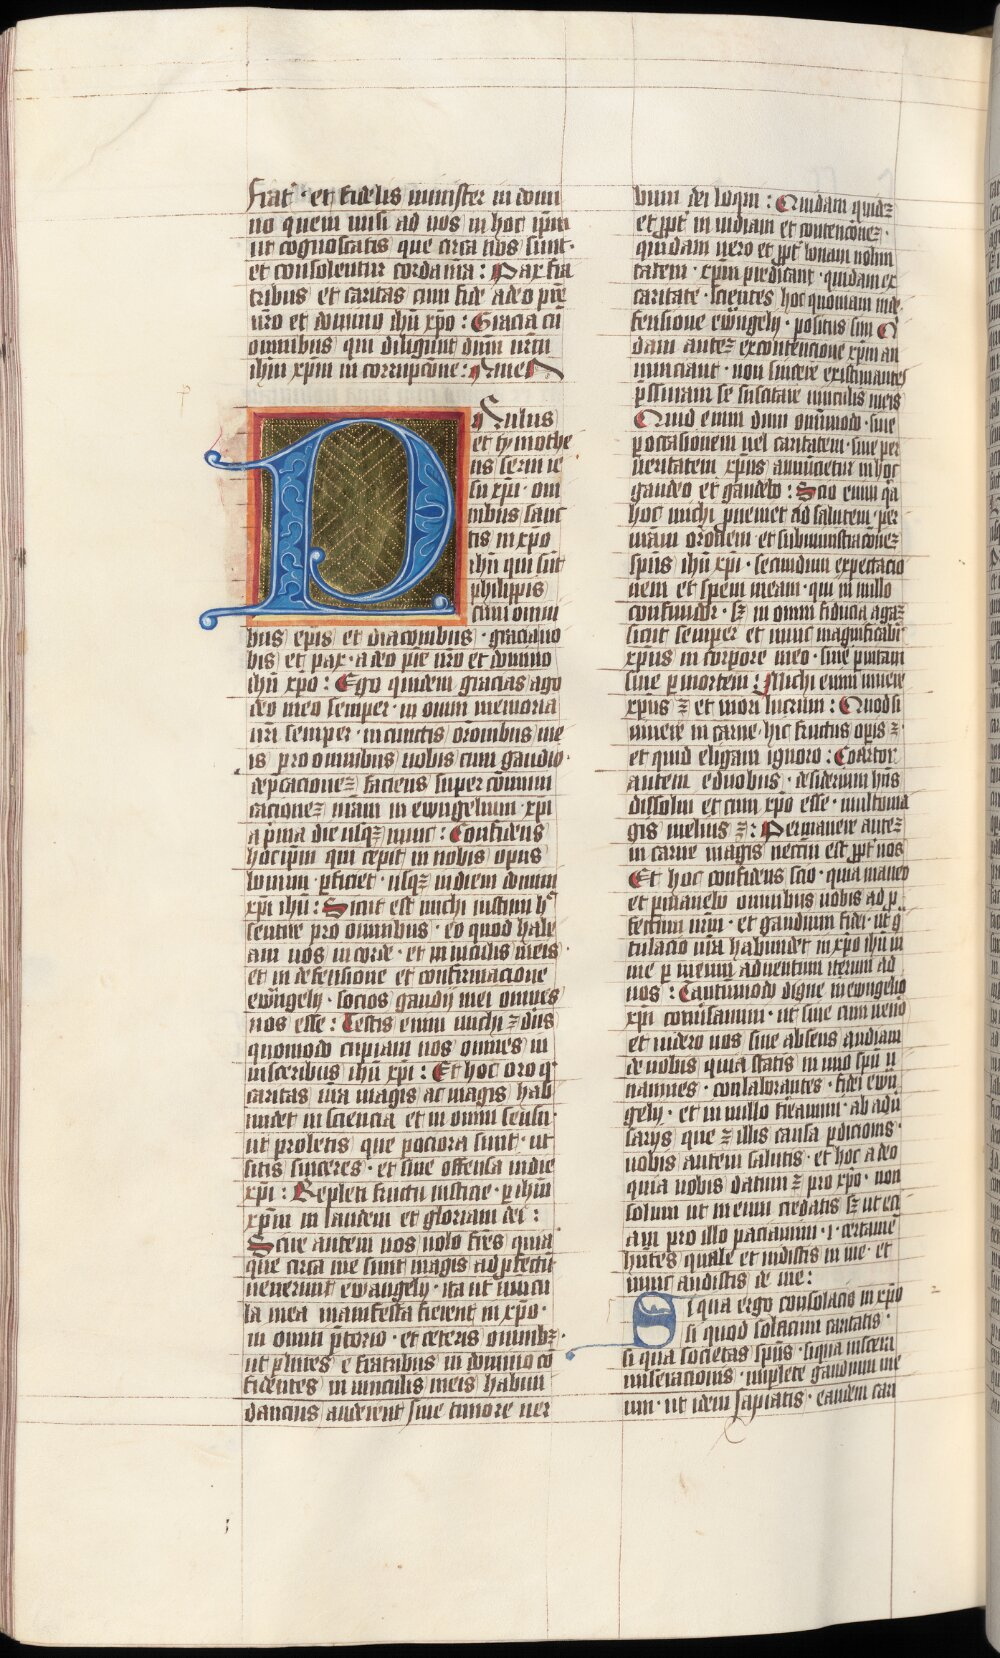 frat᷑ · et fidelis minister in domi
no quem misi ad vos in hoc ip̄m
ut cognoscatis que circa nos sunt ·
et consolentur corda n̄ra : Pax fra
tribus et caritas cum fide a deo pr̄e
nr̄o et domino ihū xp̄o : Gracia cū
omnibus qui diligunt dūm nr̄m
ihm̄ xp̄m in corrupc̄one : Amen
Paulus
et thymothe
us servi ie
su xp̄i · om
nibus sanc
tis in xp̄o
ihū qui sūt
philippis
cum omni
bus ep̄is et diaconibus · gracia vo
bis et pax · a deo pr̄e nr̄o et domino
ihū xp̄o : Ego quidem gracias ago
deo meo semper · in omni memoria
vr̄i semper · in cunctis orōnibus me
is pro omnibus vobis cum gaudio ·
dep̄cacioneȝ faciens super cōmuni
cacioneȝ vr̄am in ewangelium xp̄i
a p̄ma die usqȝ nunc : Confidens
hoc ip̄m qui cepit in vobis opus
bonum · p̄ficiet · usqȝ in diem domini
xp̄i ihū : Sicut est michi iustum h̊
sentire pro omnibus · eo quod habe
am vos in corde · et in vīculis meis ·
et in defensione et confirmacione
ewāgelij · socios gaudij mei omnes
vos esse : Testis enim michi ē dūs
quomodo cupiam vos omnes in
visceribus ihū xp̄i : Et hoc oro q̄
caritas vr̄a magis ac magis hab
undet in sciencia et in omni sensu ·
ut probetis que pociora sunt · ut
sitis sinceres · et sine offensa in die
xp̄i : Repleti fructu iusticie · p̄ ihm̄
xp̄m in laudem et gloriam dei :
Scire autem vos volo fr̄es quia
que circa me sunt magis ad p̄fectū
venerunt ewangelij · ita ut vincu
la mea manifesta fierent in xp̄o ·
in omni p̄torio · et ceteris omnibȝ ·
ut p̄lures e fratribus in domino cō
fidentes in vinculis meis habun
dancius auderent sine timore ver
bum dei loqui : Quidam quidē
et p̄pt̄ invidiam et contencōneȝ ·
quidam vero et p̄pt̄ bonam volun
tatem · xp̄m predicant · quidam ex
caritate · scientes hoc quoniam in de
fensione ewāgelij · positus sum Q
dam auteȝ ex contencione xp̄m an
nunciant · non sincere existimantes
p̄ssuram se suscitare vinculis meis
Quid enim dum om̄imodo · sive
p̄ occasionem vel caritatem · sive per
veritatem xp̄us annūcietur in hoc
gaudeo et gaudebo : Scio enim q̄a
hoc michi p̄veniet ad salutem · per
vr̄am orōnem · et subministracōneȝ
sp̄us ihū xp̄i · secundum expectacio
nem et spem meam · qui in nullo
confundor · sȝ in omni fiducia agaȝ
sicut semper et nunc magnificabit᷑
xp̄us in corpore meo · sive p̄ vitam
sive p̄ mortem : Michi enim vivere
xp̄us ē et mori lucrum : Quod si
vivere in carne · hic fructus op̄is ē ·
et quid eligam ignoro : Coartor
autem e duobus · desiderium hn̄s
dissolvi et cum xp̄o esse · multo ma
gis melius ē : Permanere auteȝ
in carne magis neccm̄ est p̄pt̄ vos
Et hoc confidens scio · quia maneo
et p̄manebo omnibus vobis ad p̄
fectum vr̄m · et gaudium fidei · ut g̊
tulacio vr̄a habundet in xp̄o ihū in
me p̄ meum adventum iterum ad
vos : Tantūmodo digne in ewngelio
xp̄i conv̄samini · ut sive cum venō
et videro vos sive absens audiam
de vobis quia statis in uno sp̄u u
nanimes · conlaborantes · fidei ewū
gelij · et in nullo treamini · ab adū
sarijs que ē illis causa p̄dicionis ·
vobis autem salutis · et hoc a deo
quia vobis datum ē pro xp̄o · non
solum ut in eum credatis sȝ ut eci
am pro illo paciamini · i · certame
hn̄tes quale et vidistis in me · et
nunc audistis de me :
Si qua ergo consolacio in xp̄o
si quod solacium caritatis ·
si qua societas sp̄us · si qua viscera
miseracionis · implete gaudium me
um · ut idem sapiatis · eandem cari